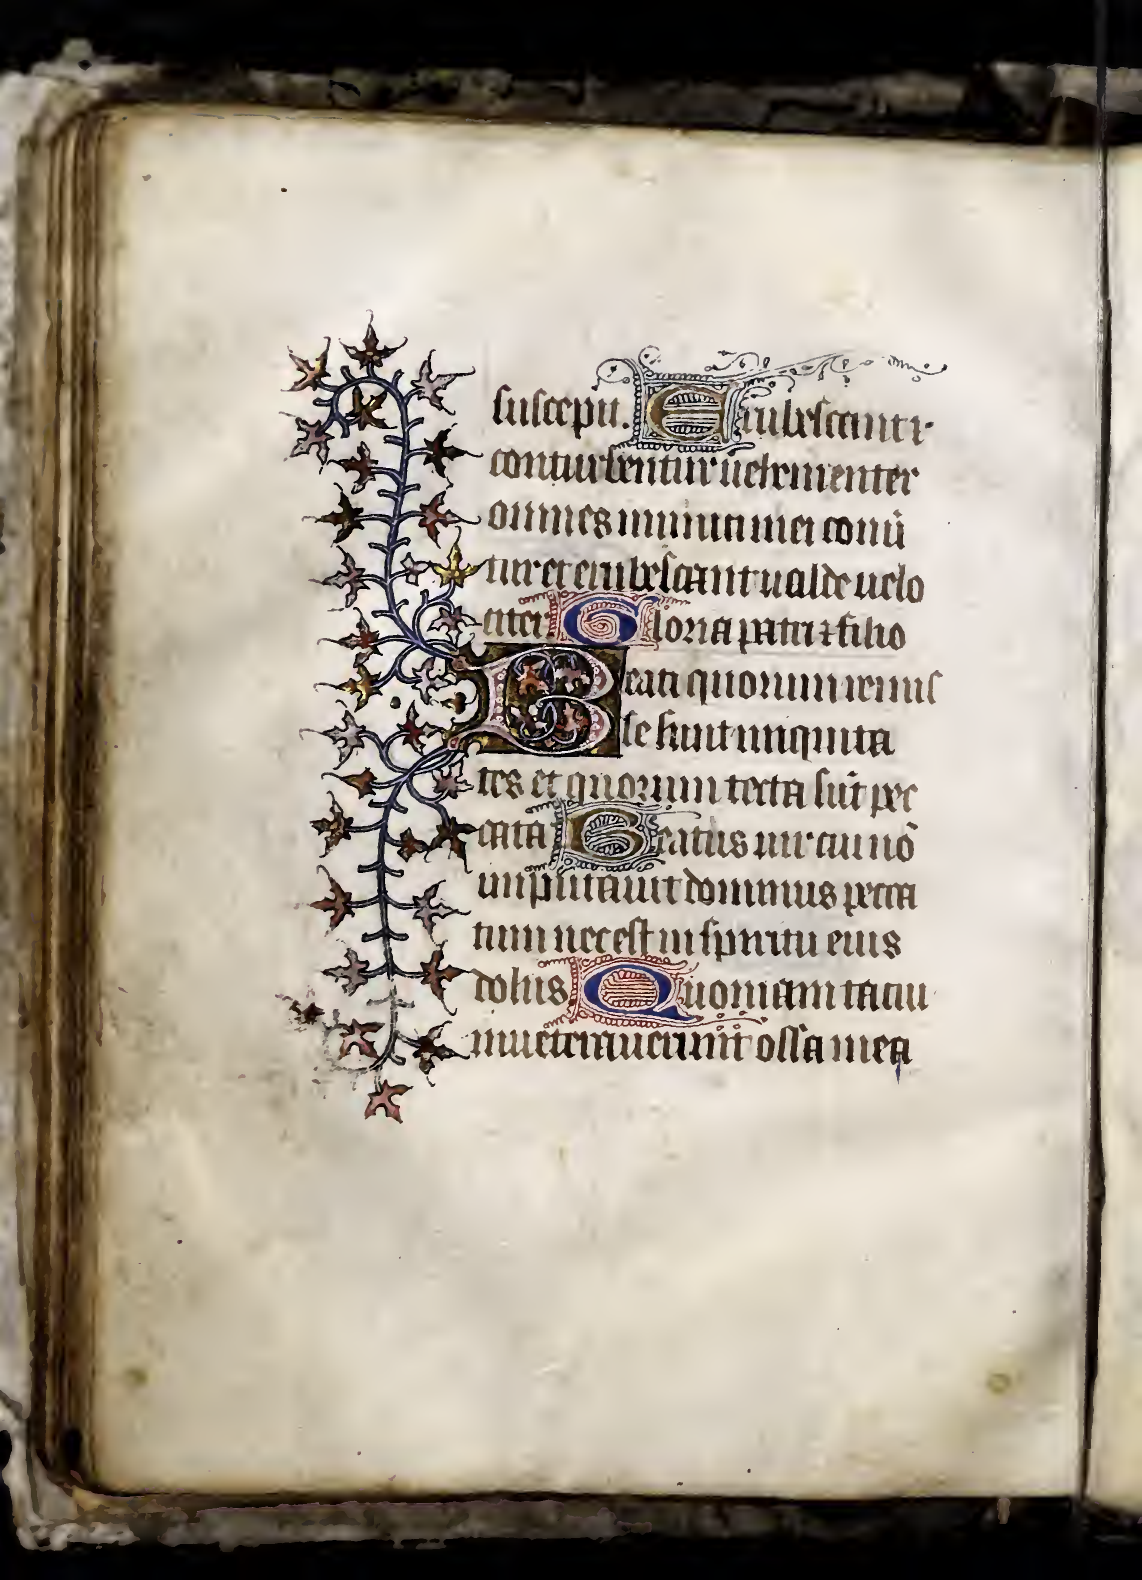 suscepit. Erubescant ⁊
conturbentur uehementer
omnes inimici mei conũ
tur et erubescant ualde uelo
citer. Gloria patri ⁊ filio
Beati quorum remis
se sunt iniquita
tes et quorum tecta sũt pec
cata Beatus uir cui nõ
imputauit dominus pecca
tum nec est in spiritu eius
dolus Quoniam tacui
inueterauerunt ossa mea